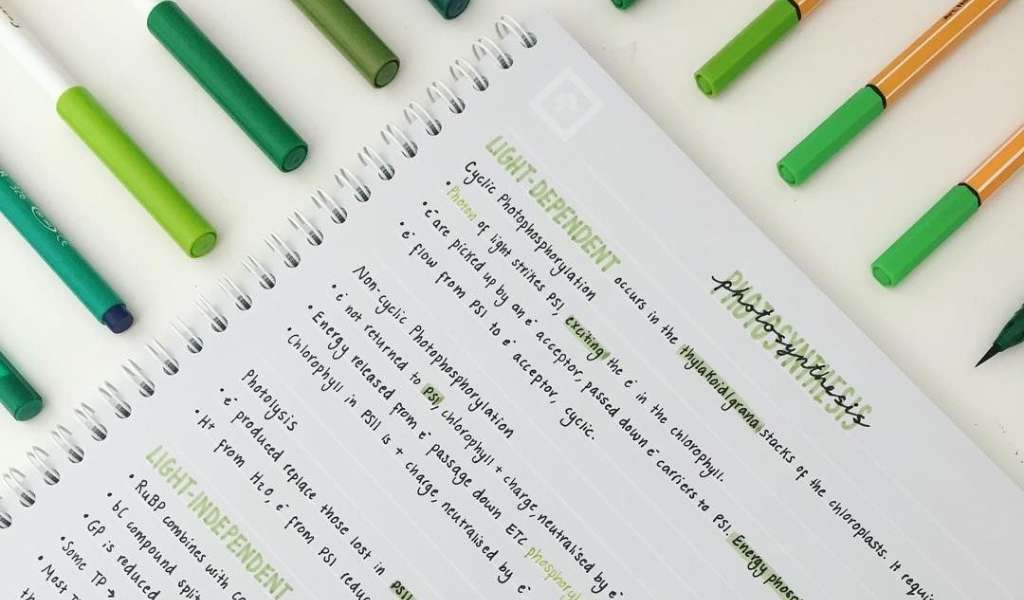 PHOTOSYNTHESIS
photosynthesis
LIGHT-DEPENDENT occurs in the thylakoid/grana stacks of the chloroplasts. It requi
Cyclic Photophosphorylation
• Photon of light strikes PSI, exciting the e⁻ in the chlorophyll.
• e⁻ are picked up by an e⁻ acceptor, passed down e⁻ carriers to PSI. Energy phosp
• e⁻ flow from PSI to e⁻ acceptor, cyclic.
Non-cyclic Photophosphorylation
• e⁻ not returned to PSI, chlorophyll + charge, neutralised by e⁻
• Energy released from e⁻ passage down ETC phosphoryl
• Chlorophyll in PSII is + charge, neutralised by e⁻
Photolysis
• e⁻ produced replace those lost in PSII
• H+ from H2O, e⁻ from PSI reduc
LIGHT-INDEPENDENT
• RuBP combines with c
• 6C compound split
• GP is reduced
• Some TP →
• Most T
th